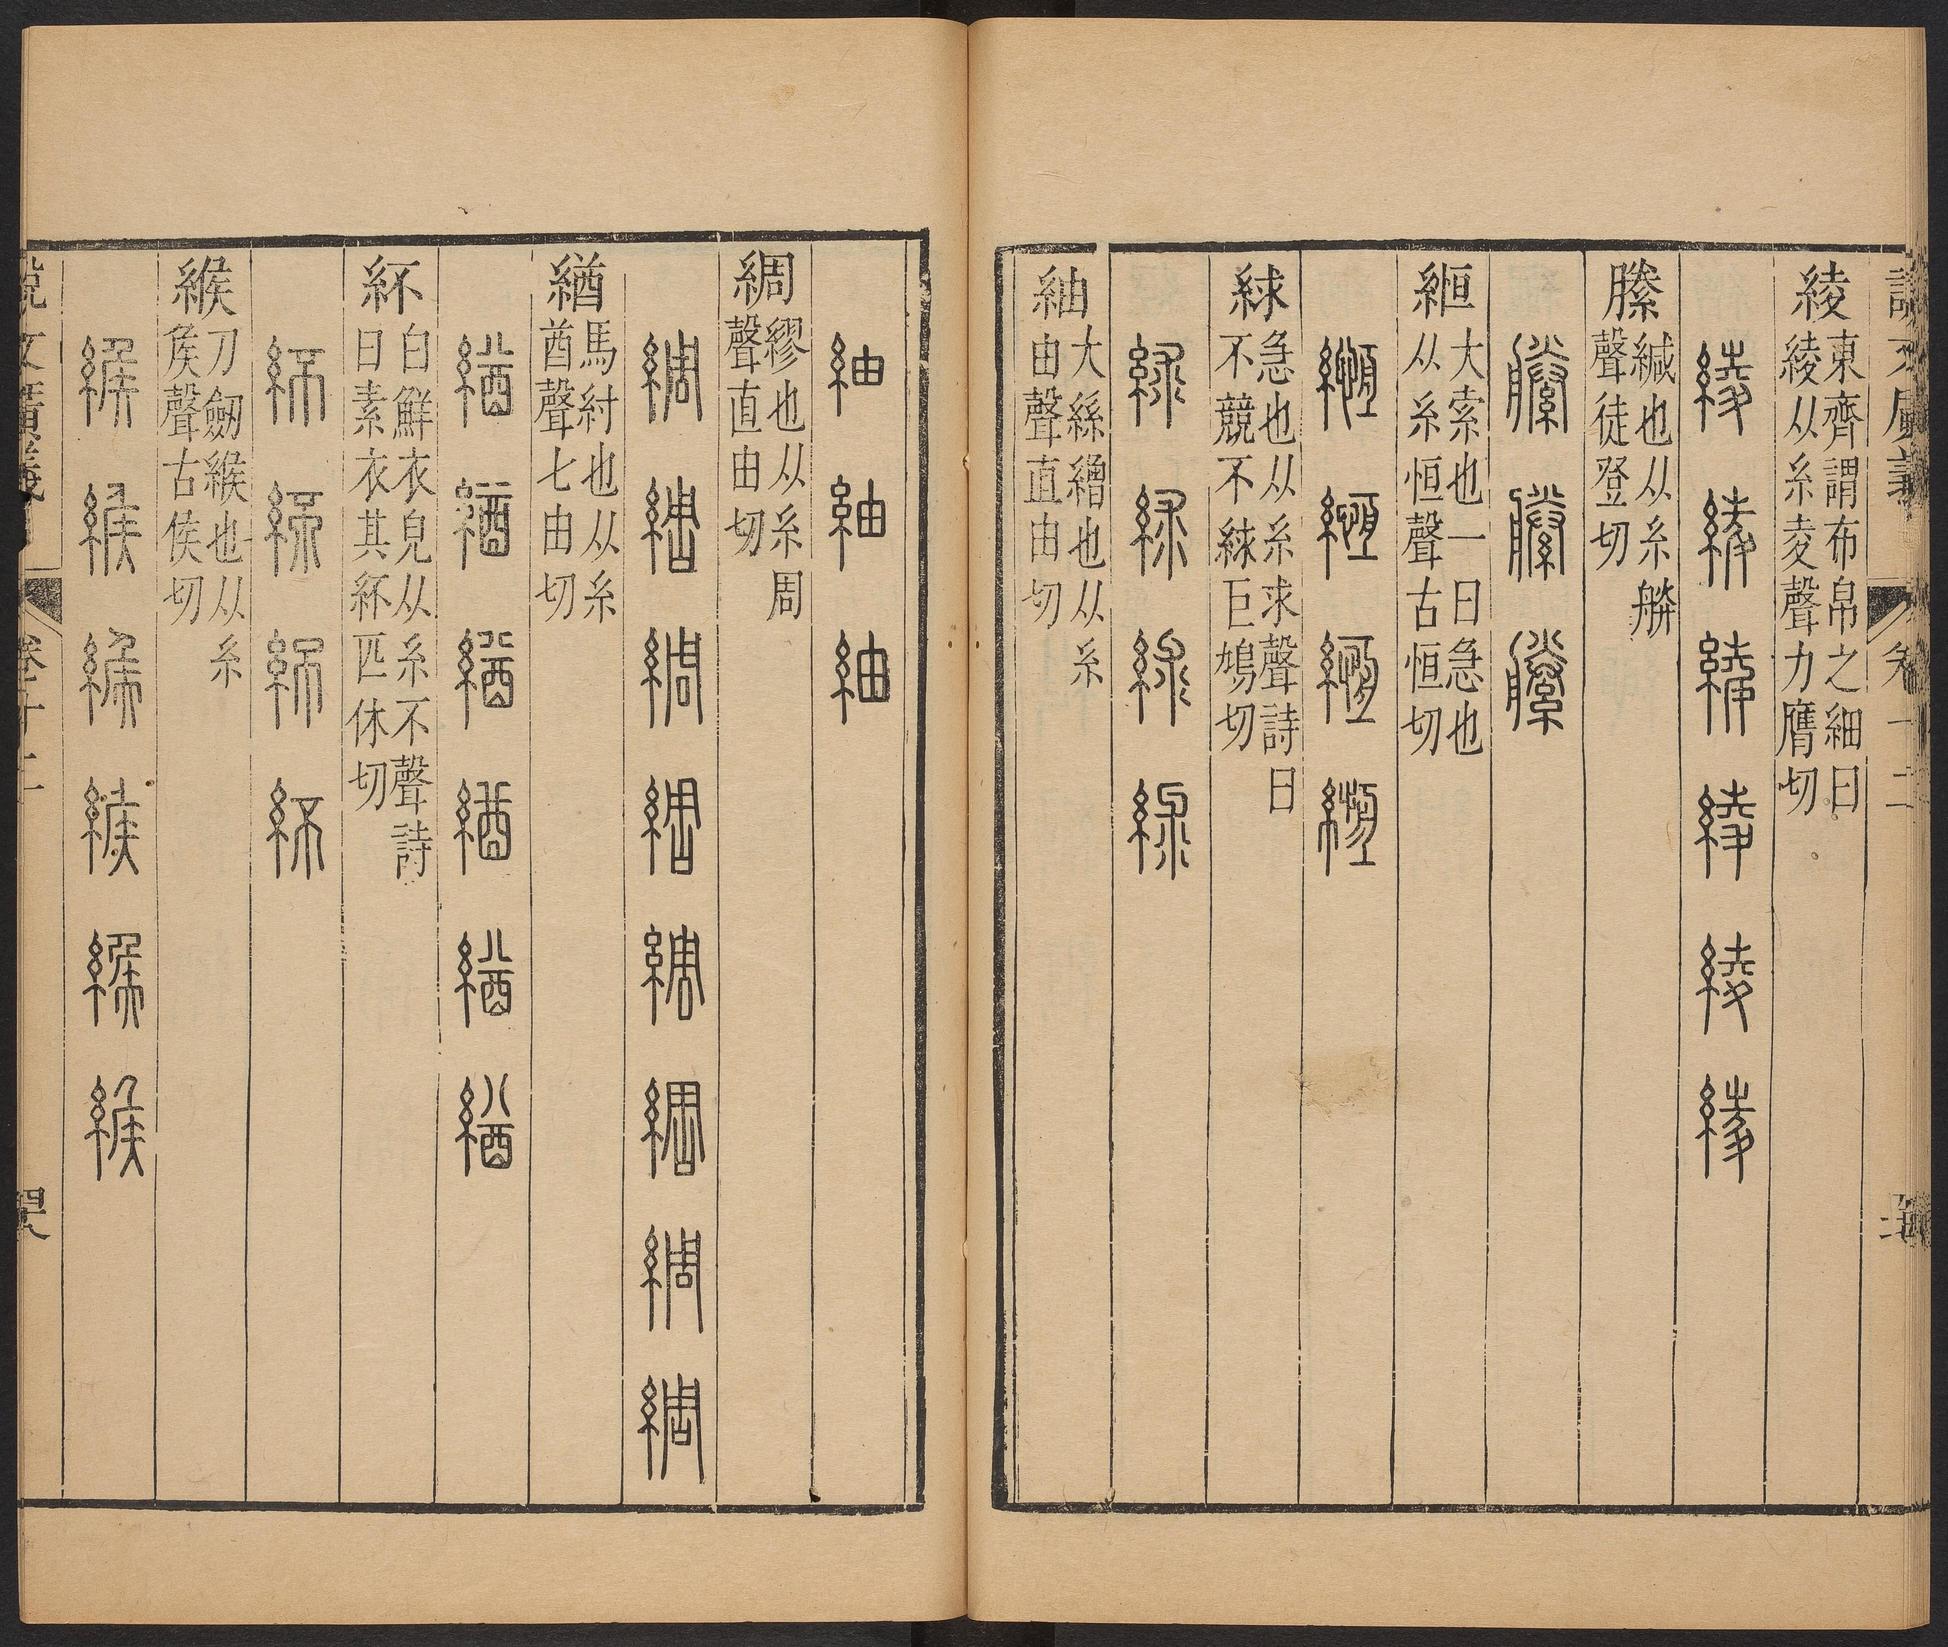 綾 東齊謂布帛之細曰
綾从糸夌聲力膺切
綾 綾 綾 綾 綾 綾
縢 緘也从糸朕
聲徒登切
縢 縢 縢
緪 大索也一曰急也
从糸恒聲古恒切
緪 緪 緪 緪
絿 急也从糸求聲詩曰
不競不絿巨鳩切
絿 絿 絿 絿
紬 大絲繒也从糸
由聲直由切
紬 紬 紬
綢 繆也从糸周
聲直由切
綢 綢 綢 綢 綢 綢 綢 綢
緧 馬紂也从糸
酋聲七由切
緧 緧 緧 緧 緧 緧
紑 白鮮衣皃从糸不聲詩
曰素衣其紑匹休切
紑 紑 紑 紑
緱 刀劒緱也从糸
矦聲古侯切
緱 緱 緱 緱 緱 緱
說文廣義 卷十二